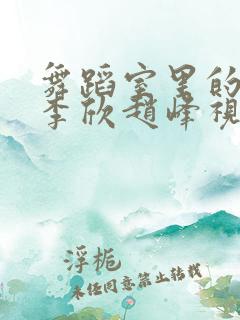 舞蹈室里的
李欣赵峰视
浮栀
未经同意禁止转载